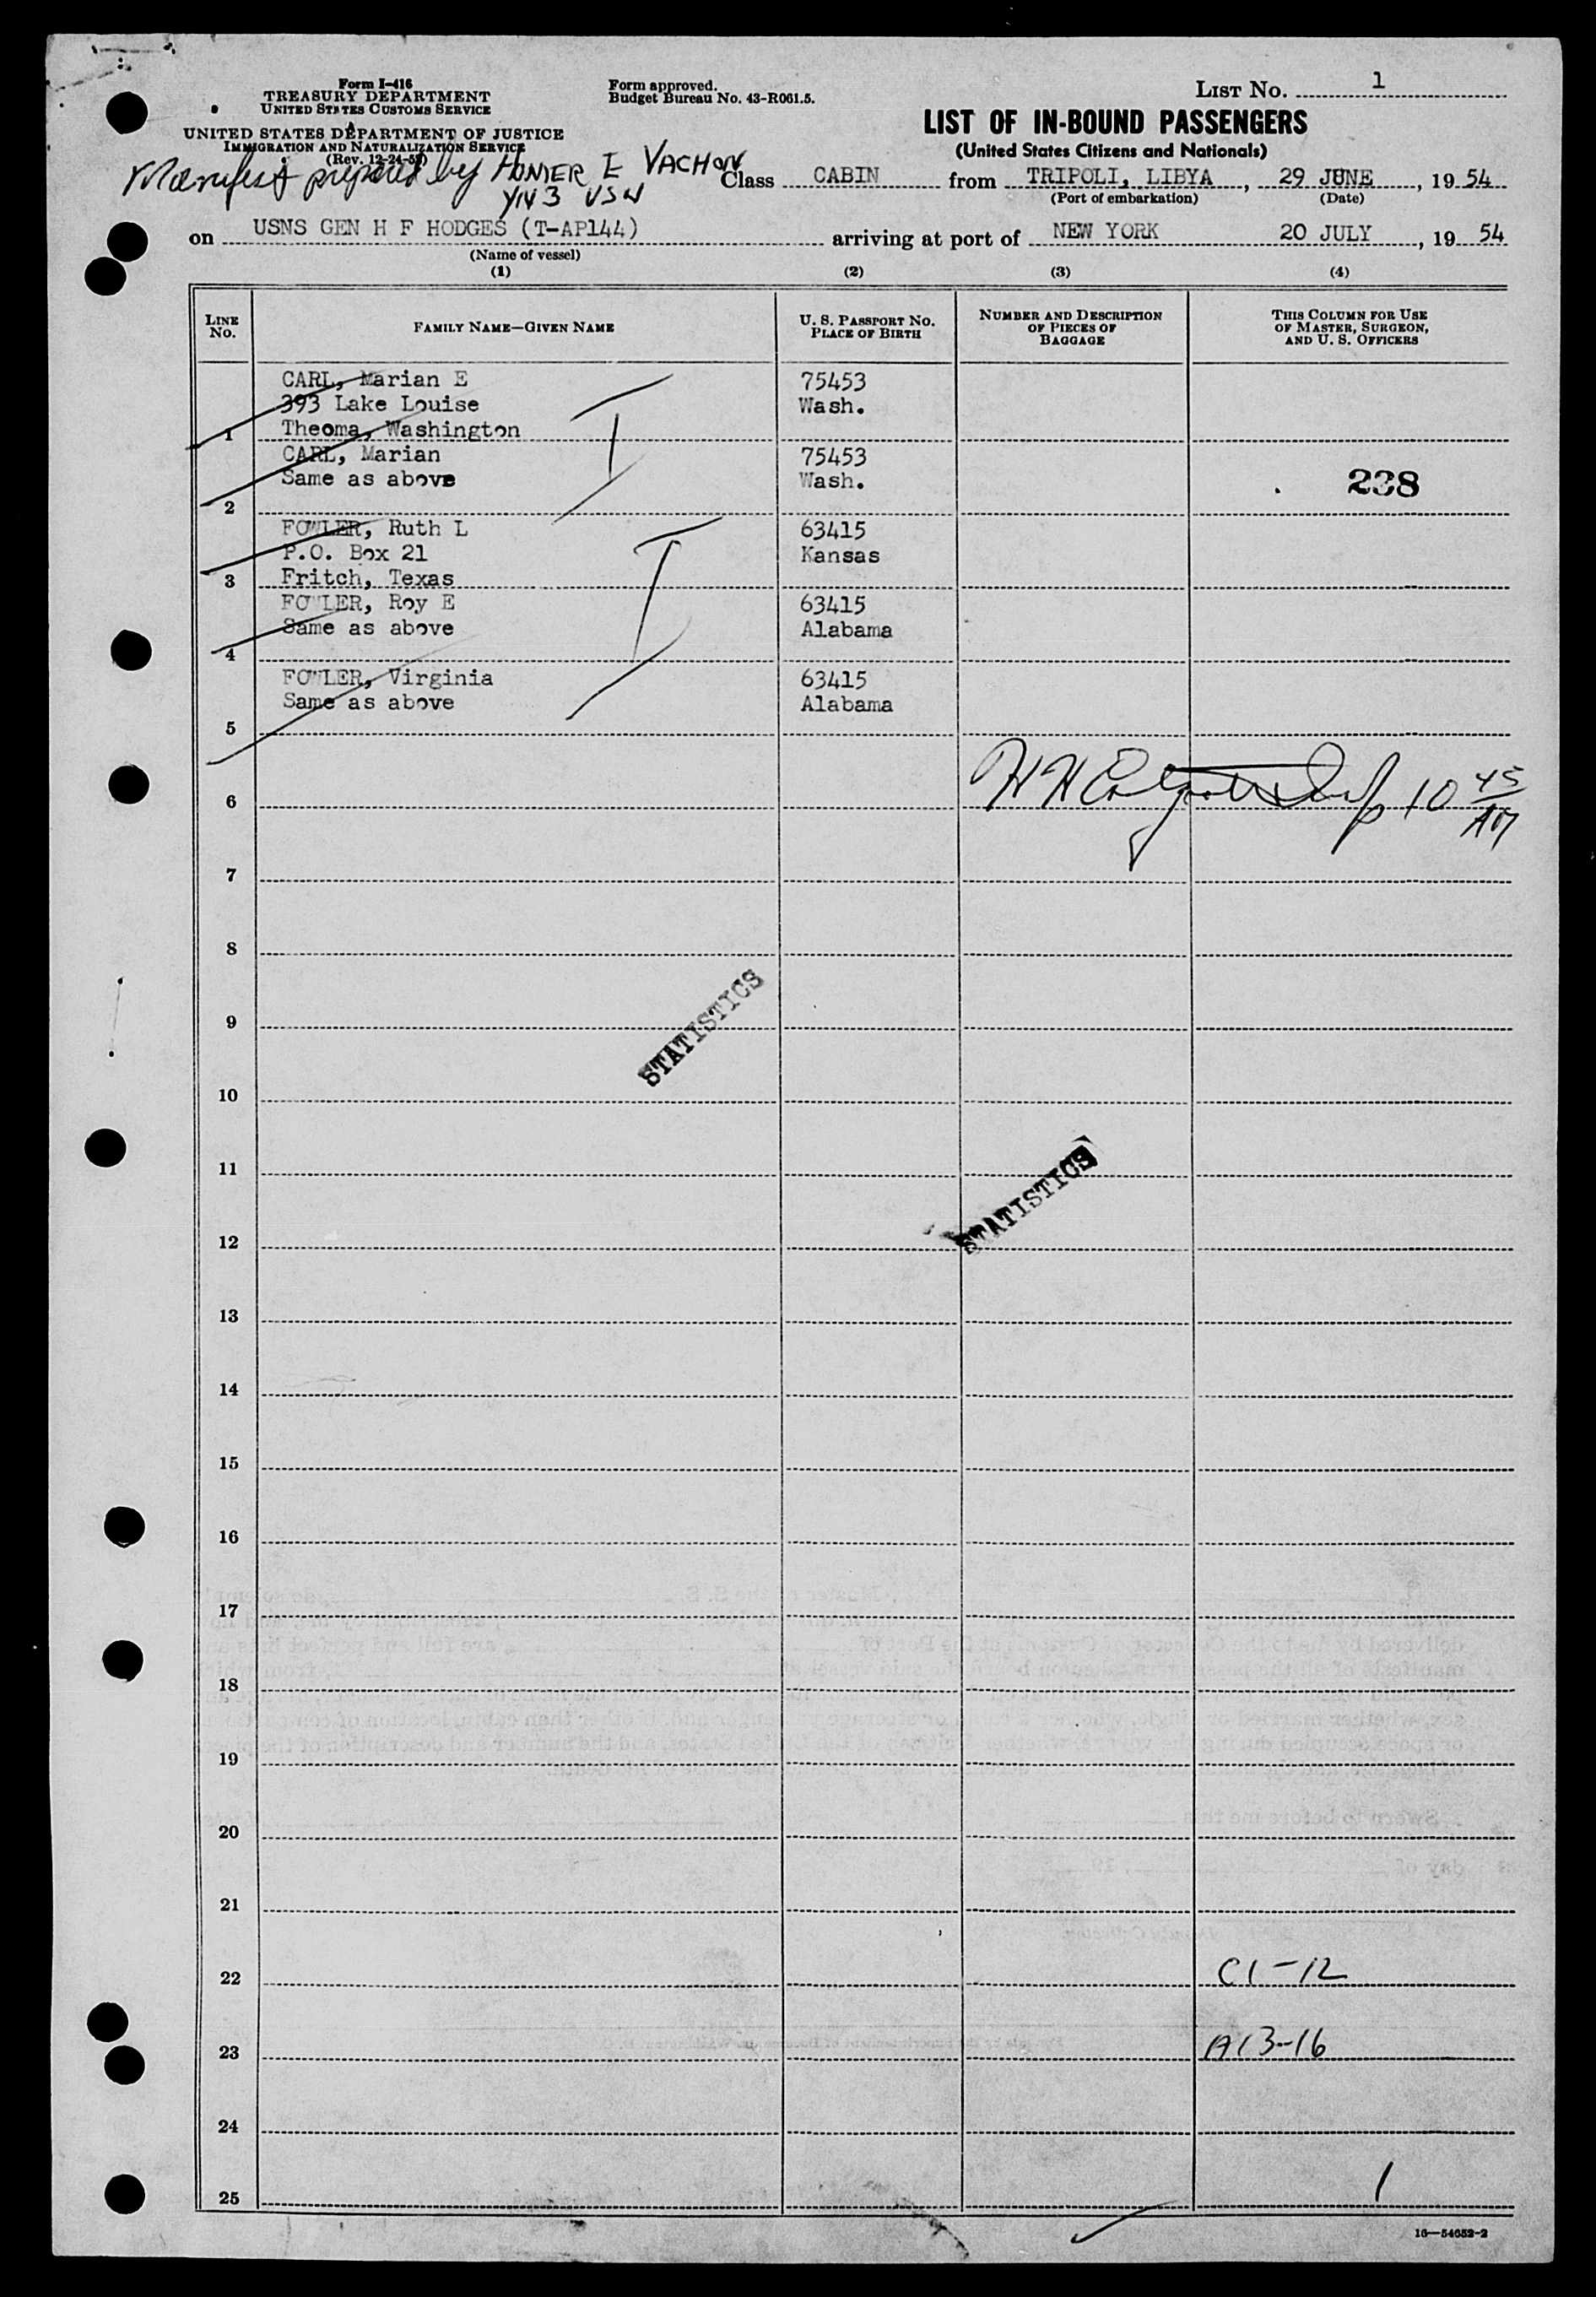 Form I-416
TREASURY DEPARTMENT
UNITED STATES CUSTOMS SERVICE
UNITED STATES DEPARTMENT OF JUSTICE
IMMIGRATION AND NATURALIZATION SERVICE
Form approved.
Budget Bureau No. 43-R061.5.
LIST NO. 1
LIST OF IN-BOUND PASSENGERS
(United States Citizens and Nationals)
Manifest prepared by HOMER E VACHON
YN3 USN
Class CABIN from TRIPOLI, LIBYA, 29 JUNE, 19 54
(Port of embarkation) (Date)
on USNS GEN H F HODGES (T-AP144) arriving at port of NEW YORK 20 JULY, 19 54
(Name of vessel)
(1) (2) (3) (4)
LINE NO. FAMILY NAME—GIVEN NAME U. S. PASSPORT NO. PLACE OF BIRTH NUMBER AND DESCRIPTION OF PIECES OF BAGGAGE THIS COLUMN FOR USE OF MASTER, SURGEON, AND U. S. OFFICERS
CARL, Marian E 75453
393 Lake Louise Wash.
1 Theoma, Washington
CARL, Marian 75453
Same as above Wash. 238
2
FOWLER, Ruth L 63415
P.O. Box 21 Kansas
3 Fritch, Texas
FOWLER, Roy E 63415
Same as above Alabama
4
FOWLER, Virginia 63415
Same as above Alabama
5
6 10 45 AM
7
8
STATISTICS
9
10
11
STATISTICS
12
13
14
15
16
17
18
19
20
21
22 C1-12
23 A13-16
24
25 1
16—54652-2